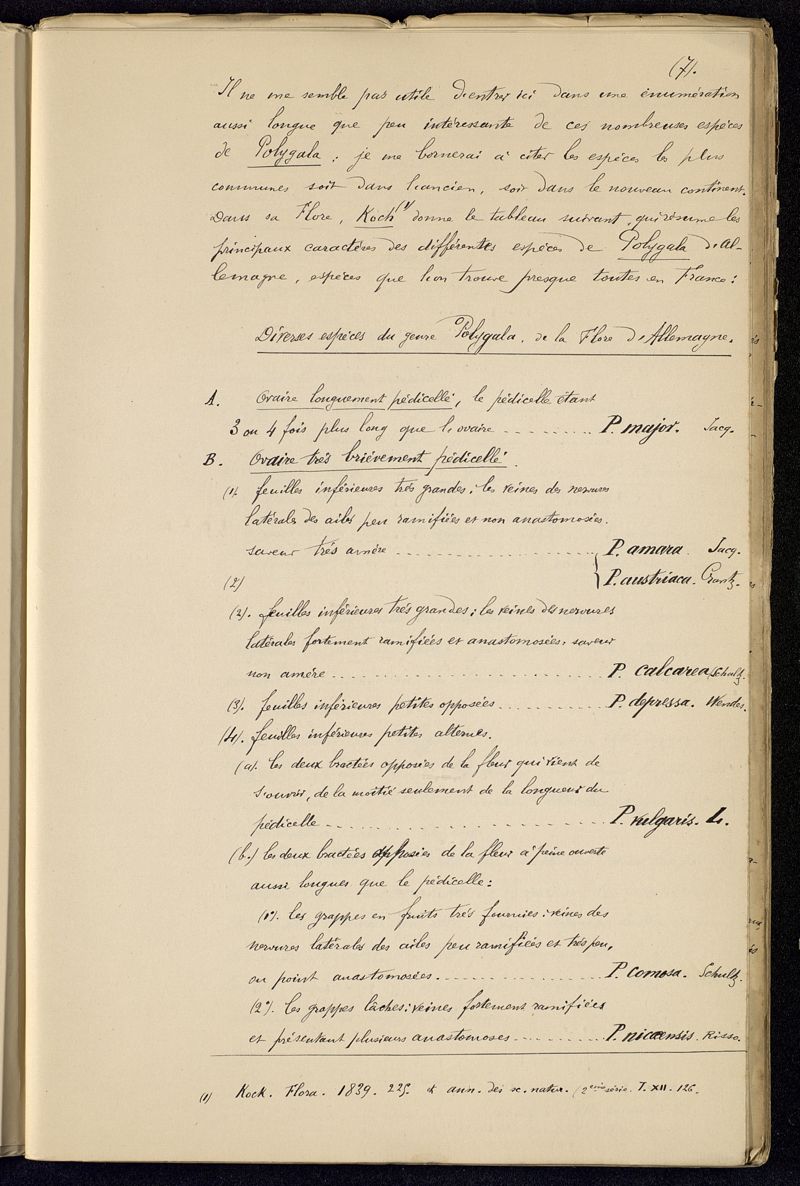 (7).
Il ne me semble pas utile d'entrer ici dans une énumération
aussi longue que peu intéressante de ces nombreuses espèces
de Polygala ; je me bornerai à citer les espèces les plus
communes soit dans l'ancien, soit dans le nouveau continent.
Dans sa Flore, Koch (1) donne le tableau suivant qui résume les
principaux caractères des différentes espèces de Polygala d'Al-
lemagne, espèces que l'on trouve presque toutes en France :
Diverses espèces du genre Polygala, de la Flore d'Allemagne.
A. Ovaire longuement pédicellé, le pédicelle étant
3 ou 4 fois plus long que l'ovaire ........ P. major. Jacq.
B. Ovaire très brièvement pédicellé.
(1). feuilles inférieures très grandes ; les veines des nervures
latérales des ailes peu ramifiées et non anastomosées.
saveur très amère ........ P. amara. Jacq.
(2) P. austriaca. Crantz.
(2). feuilles inférieures très grandes ; les veines des nervures
latérales fortement ramifiées et anastomosées, saveur
non amère ........ P. calcarea Schultz.
(3). feuilles inférieures petites opposées ........ P. depressa. Wender.
(4). feuilles inférieures petites alternes.
(a). les deux bractées opposées de la fleur qui vient de
s'ouvrir, de la moitié seulement de la longueur du
pédicelle ........ P. vulgaris. L.
(b.) les deux bractées opposées de la fleur à peine ouverte
aussi longues que le pédicelle :
(1°). les grappes en fruits très fournies : veines des
nervures latérales des ailes peu ramifiées et très peu,
ou point anastomosées ........ P. comosa. Schultz.
(2°). les grappes lâches : veines fortement ramifiées
et présentant plusieurs anastomoses ........ P. nicaensis. Risso.
(1) Kock. Flora. 1839. 225. & ann. des sc. natur. (2ème série. T. XII. 126.